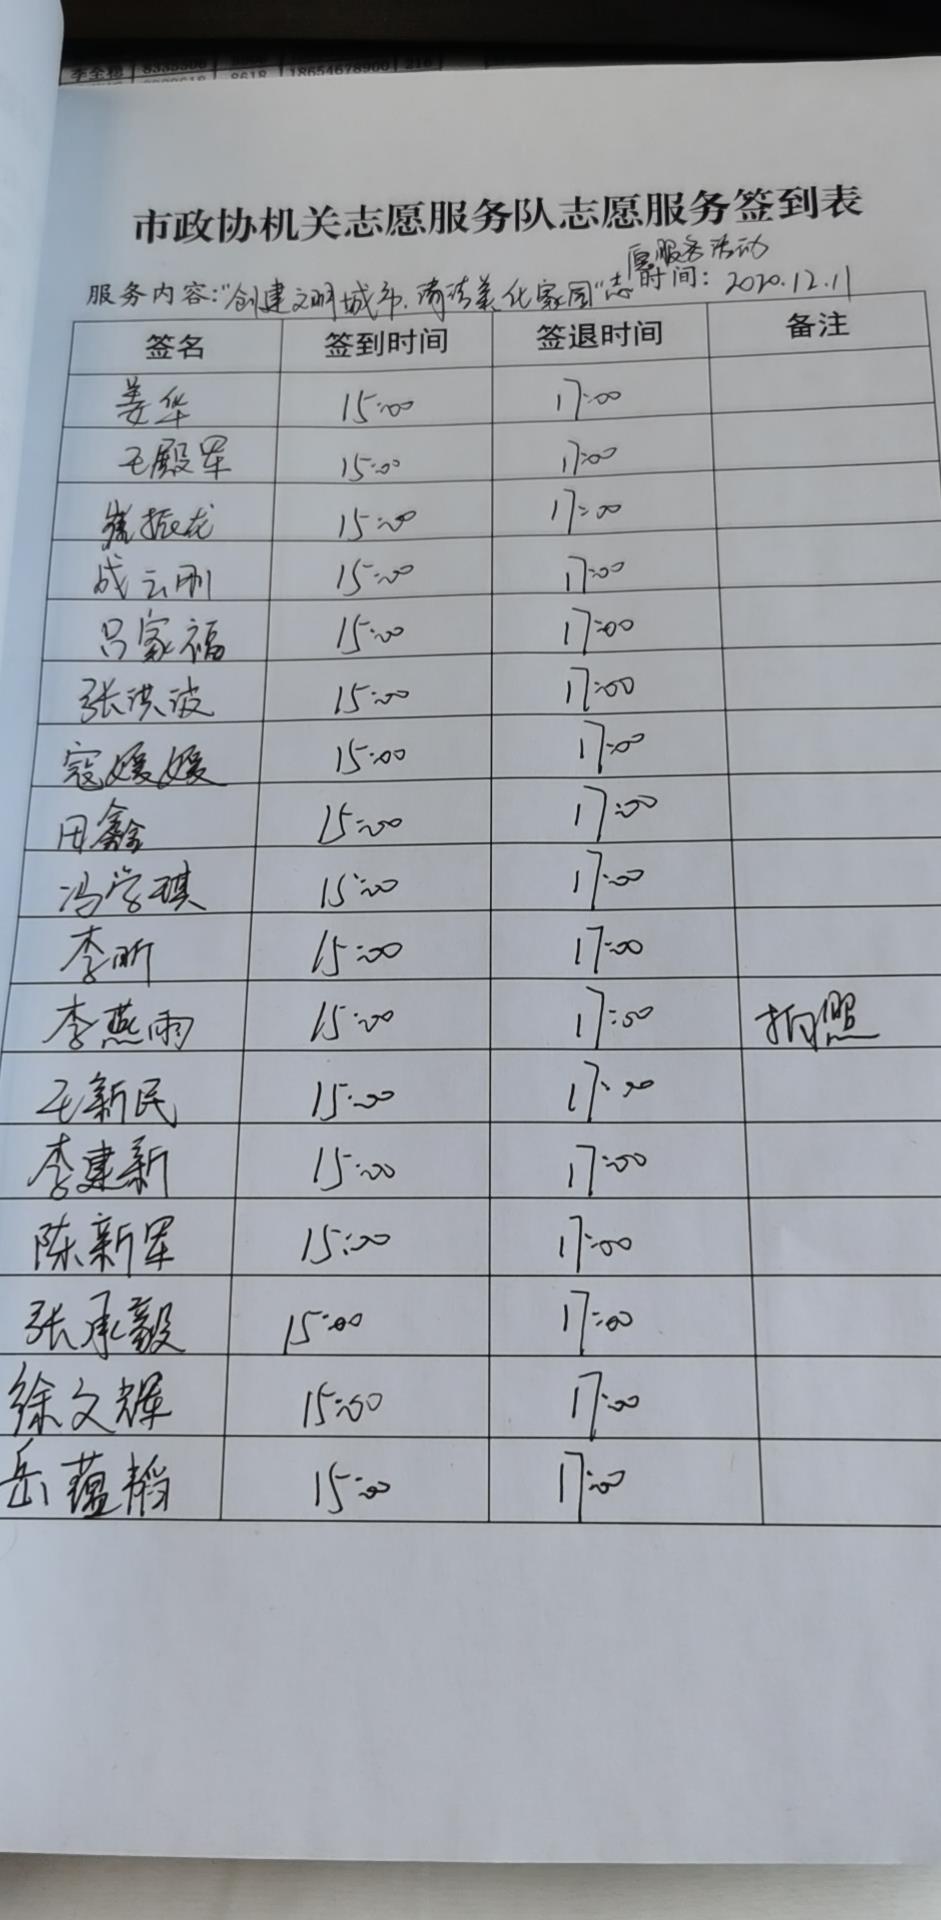 李全德 8335506
8618 18654678900 216
市政协机关志愿服务队志愿服务签到表
服务内容:“创建文明城市、清洁美化家园”志愿服务活动 时间: 2020.12.11
签名 签到时间 签退时间 备注
姜华 15:00 17:00
王殿军 15:00 17:00
崔振龙 15:00 17:00
成云刚 15:00 17:00
吕家福 15:00 17:00
张洪波 15:00 17:00
寇媛媛 15:00 17:00
田鑫 15:00 17:00
冯学琪 15:00 17:00
李昕 15:00 17:00
李燕雨 15:00 17:00 拍照
王新民 15:00 17:00
李建新 15:00 17:00
陈新军 15:00 17:00
张承毅 15:00 17:00
徐文辉 15:00 17:00
岳蕴韬 15:00 17:00